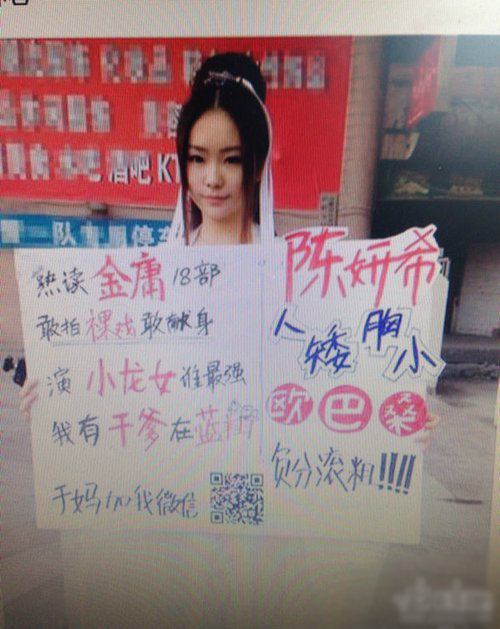 水吧 酒吧 KT
队 停车
熟读金庸18部
敢拍裸戏敢献身
演小龙女谁最强
我有干爹在蓝翔
于妈加我微信
陈妍希
人矮胸小
欧巴桑
负分滚粗!!!!